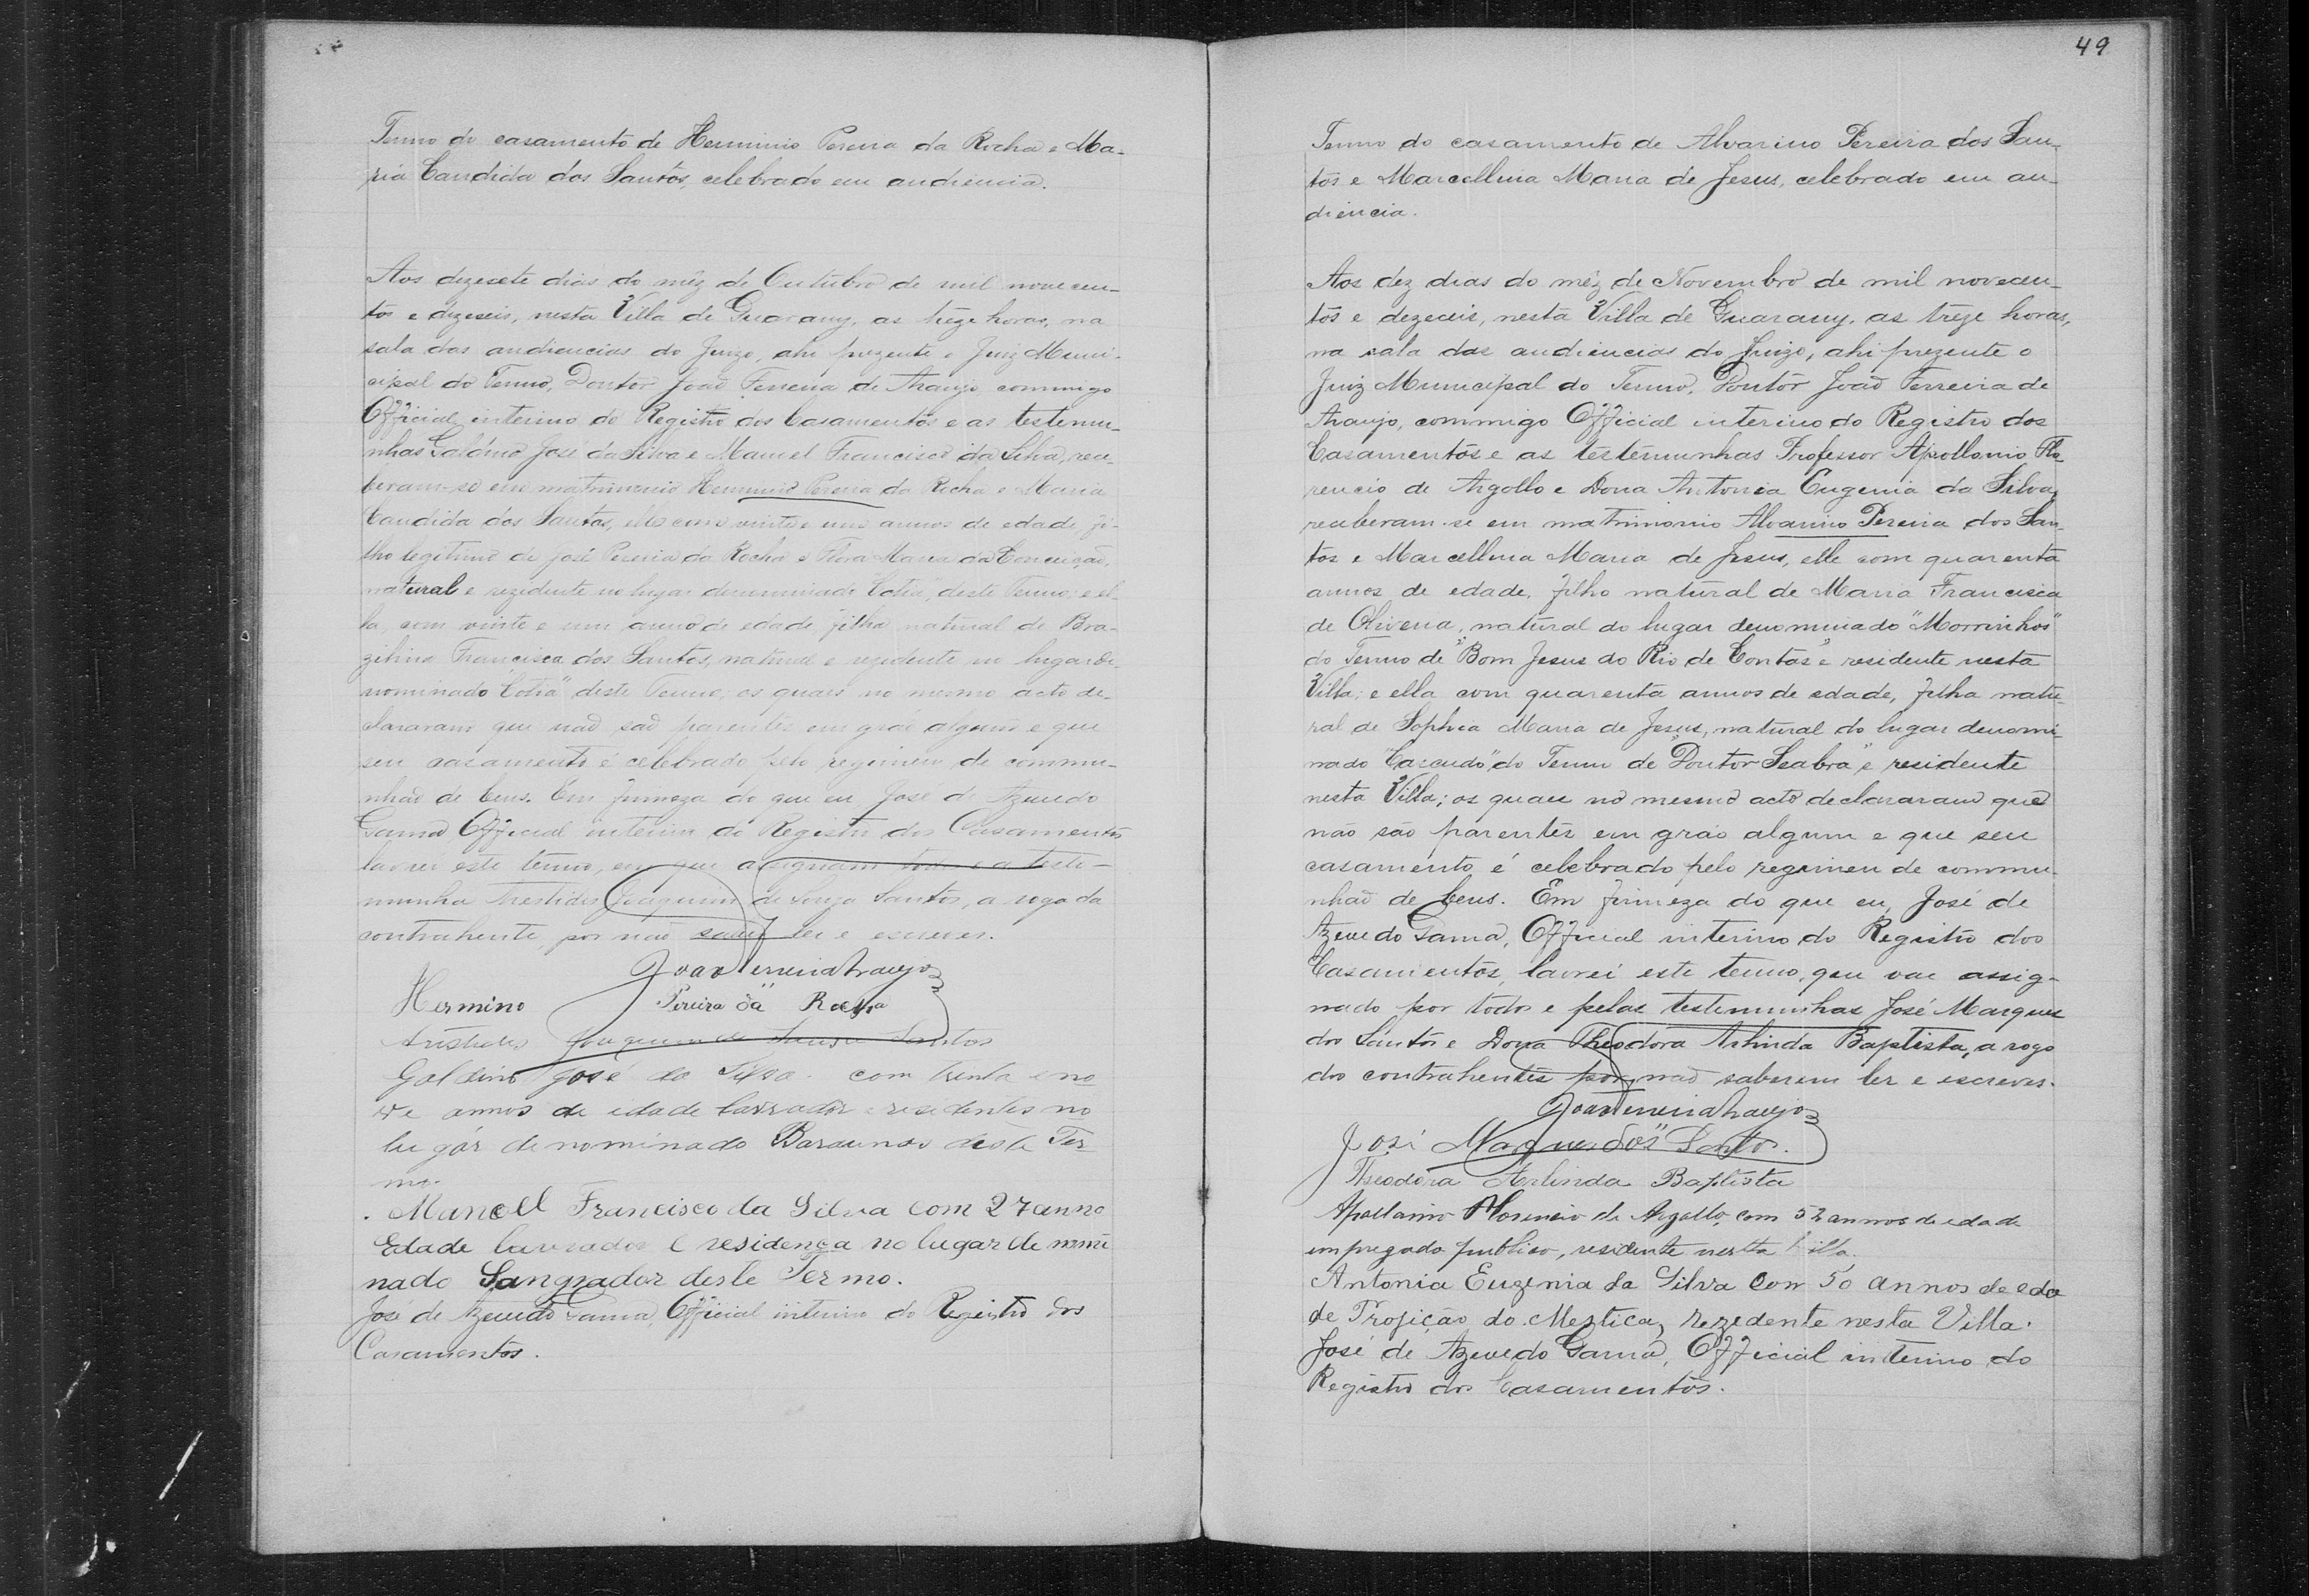 Termo do casamento de Herminio Pereira da Rocha e Ma-
ria Candida dos Santos, celebrado em audiencia.
Aos dezesete dias do mêz de Outubro de mil novecen-
tos e dezeseis, nesta Villa de Guarany, as trêze horas, na
sala das audiencias do Juizo, ahi prezente o Juiz Muni-
cipal do Termo, Doutor João Ferreira de Araujo, commigo
Official interino do Registro dos Casamentos e as testemu-
nhas Galdino José da Silva e Manuel Francisco da Silva, rece-
beram-se em matrimonio Herminio Pereira da Rocha e Maria
Candida dos Santos, elle com vinte e um annos de edade, fi-
lho legitimo de José Pereira da Rocha e Flora Maria da Conceição,
natural e rezidente no lugar denominado "Cotia", deste Termo; e el-
la, com vinte e um anno de edade, filha natural de Bra-
zilina Francisca dos Santos, natural e rezidente no lugar de-
nominado "Cotia" deste Termo; os quaes no mesmo acto de-
clararam que não são parentes em gráo algum e que
seu casamento é celebrado pelo regimen de commu-
nhão de bens. Em firmeza do que eu, José de Azevedo
Gama, Official interino do Registro dos Casamentos
lavrei este termo, em que assignam todos e a teste-
munha Aristides Joaquim de Souza Santos, a rogo da
contrahente, por não saber ler e escrever.
João Ferreira Araujo
Hermino Pereira da Rocha
Aristides Joaquim de Souza Santos
Galdino José da Silva. com trenta e no
ve annos de idade lavrador e residentes no
lugár denominado Baraunas deste Ter
mo.
. Manoell Francisco da Silva com 27 anno
Edade lavrador e residença no lugar de nomi
nado Sangrador deste Termo.
José de Azevedo Gama, Official interino do Registro dos
Casamentos.
49
Termo do casamento de Alvarino Pereira dos San-
tos e Marcellina Maria de Jesus, celebrado em au-
diencia.
Aos dez dias do mêz de Novembro de mil novecen-
tos e dezeceis, nesta Villa de Guarany, as trêze horas,
na sala das audiencias do Juizo, ahi prezente o
Juiz Municipal do Termo, Doutor João Ferreira de
Araujo, commigo Official interino do Registro dos
Casamentos e as testemunhas Professor Apollonio Flo-
rencio de Argollo e Dona Antonia Eugenia da Silva,
receberam-se em matrimonio Alvarino Pereira dos San-
tos e Marcellina Maria de Jesus, elle com quarenta
annos de edade, filho natural de Maria Francisca
de Oliveira, natural do lugar denominado "Morrinhos"
do Termo de "Bom Jesus do Rio de Contas" e residente nesta
Villa; e ella com quarenta annos de edade, filha natu-
ral de Sophia Maria de Jesus, natural do lugar denomi-
nado "Cascudo" do Termo de "Doutor Seabra" e residente
nesta Villa; os quaes no mesmo acto declararam que
não são parentes em gráo algum e que seu
casamento é celebrado pelo regimen de commu-
nhão de bens. Em firmeza do que eu, José de
Azevedo Gama, Official interino do Registro dos
Casamentos, lavrei este termo, que vae assig-
nado por todos e pelas testemunhas José Marques
dos Santos e Dona Theodora Arlinda Baptista, a rogo
dos contrahentes por não saberem ler e escrever.
João Ferreira Araujo
José Marques dos Santos.
Theodora Arlinda Baptista
Apollonio Florencio de Argollo, com 52 annos de edade
empregado publico, residente nesta Villa.
Antonia Eugenia da Silva Com 50 annos de eda
de Profição do. Mestica, rezedente nesta Villa.
José de Azevedo Gama, Official interino do
Registro dos Casamentos.